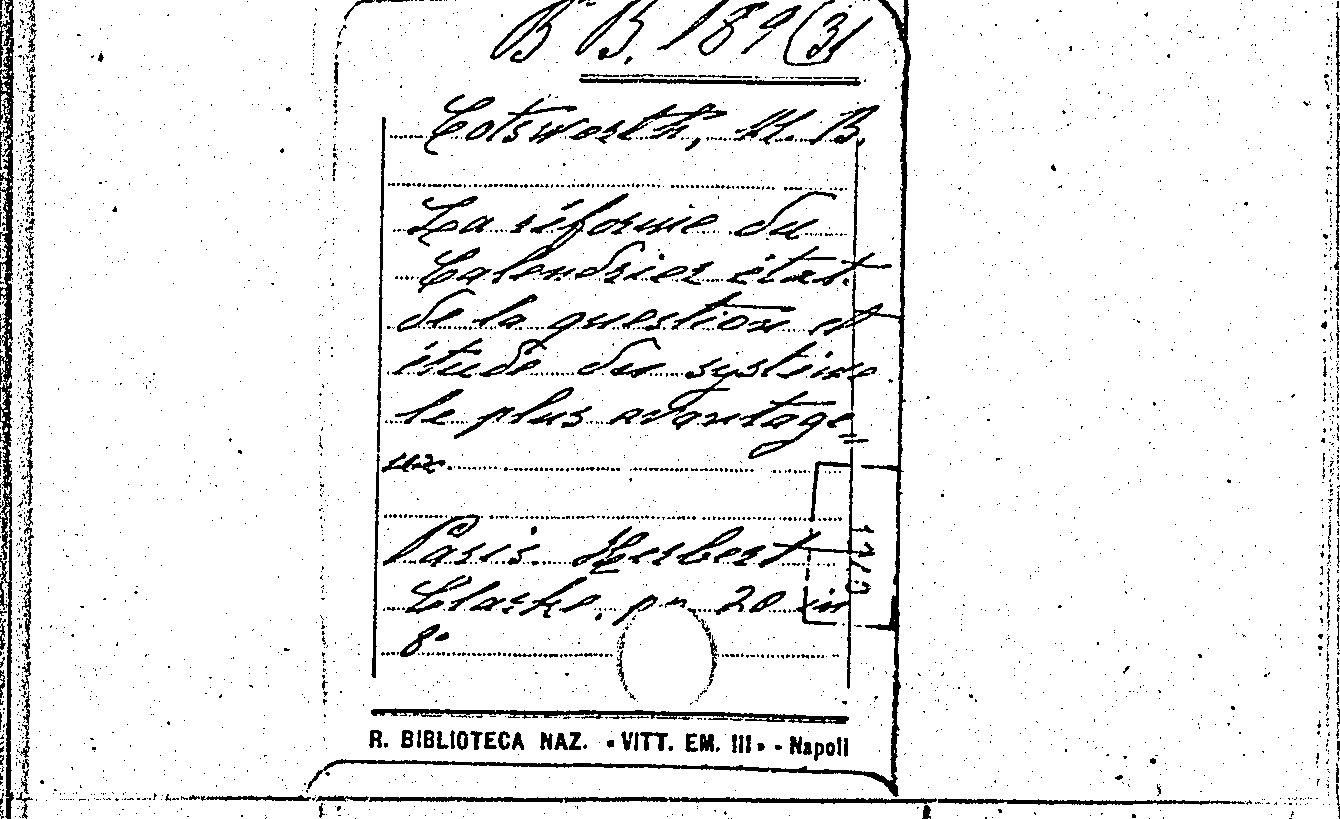 Bª B. 189(31
Cotsworth, M. B.
La réforme du
Calendrier état.
de la question et
étude du système
le plus avantage=
ux.
Paris. Herbert
Clarke. pp. 20 in
8°
R. BIBLIOTECA NAZ. «VITT. EM. III» - Napoli